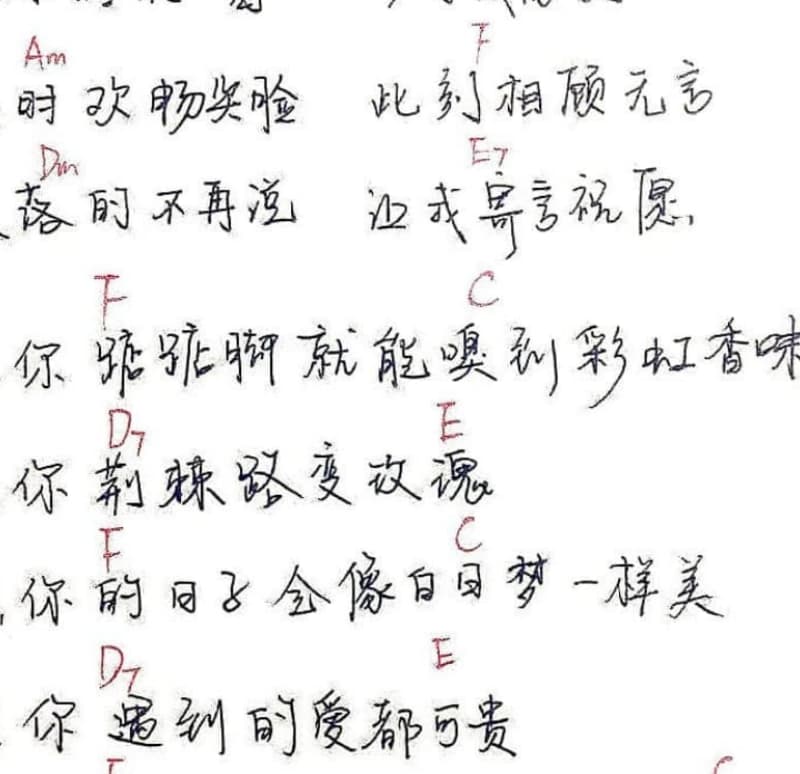 Am F
时欢畅笑脸 此刻相顾无言
Dm E7
落的不再说 让我寄言祝愿
F C
你踮踮脚就能嗅到彩虹香味
D7 E
你荆棘路变玫瑰
F C
你的日子会像白日梦一样美
D7 E
你遇到的爱都可贵